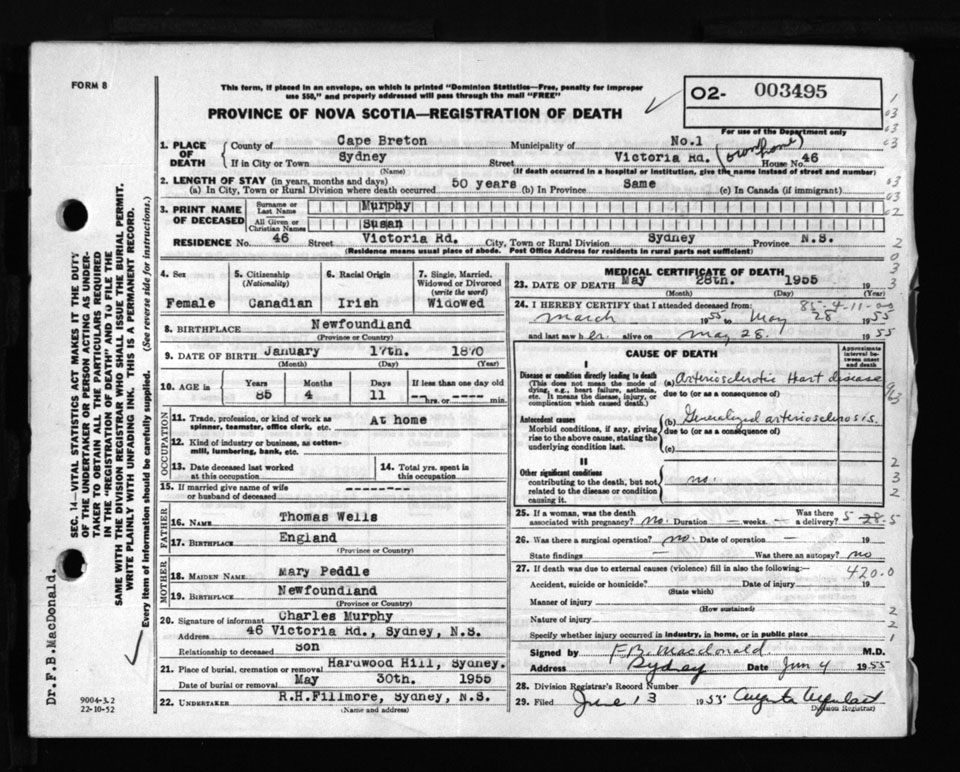 FORM 8
This form, if placed in an envelope, on which is printed "Dominion Statistics—Free, penalty for improper
use $50," and properly addressed will pass through the mail "FREE"
O2- 003495
For use of the Department only
PROVINCE OF NOVA SCOTIA—REGISTRATION OF DEATH
1. PLACE OF DEATH
County of Cape Breton Municipality of No.1
If in City or Town Sydney Street Victoria Rd. House No. 46
(Name) (If death occurred in a hospital or institution, give the name instead of street and number)
2. LENGTH OF STAY (in years, months and days)
(a) In City, Town or Rural Division where death occurred 50 years (b) In Province Same (c) In Canada (if immigrant)
3. PRINT NAME OF DECEASED
Surname or Last Name Murphy
All Given or Christian Names Susan
RESIDENCE No. 46 Street Victoria Rd. City, Town or Rural Division Sydney Province N.S.
(Residence means usual place of abode. Post Office Address for residents in rural parts not sufficient)
4. Sex Female
5. Citizenship (Nationality) Canadian
6. Racial Origin Irish
7. Single, Married, Widowed or Divorced (write the word) Widowed
8. BIRTHPLACE Newfoundland
(Province or Country)
9. DATE OF BIRTH January 17th. 1870
(Month) (Day) (Year)
10. AGE in Years 85 Months 4 Days 11 If less than one day old ---- hrs. or ---- min.
OCCUPATION
11. Trade, profession, or kind of work as spinner, teamster, office clerk, etc. At home
12. Kind of industry or business, as cotton-mill, lumbering, bank, etc.
13. Date deceased last worked at this occupation
14. Total yrs. spent in this occupation
15. If married give name of wife or husband of deceased --------
FATHER
16. NAME Thomas Wells
17. BIRTHPLACE England
(Province or Country)
MOTHER
18. MAIDEN NAME Mary Peddle
19. BIRTHPLACE Newfoundland
(Province or Country)
20. Signature of informant Charles Murphy
Address 46 Victoria Rd., Sydney, N.S.
Relationship to deceased Son
21. Place of burial, cremation or removal Hardwood Hill, Sydney.
Date of burial or removal May 30th. 1955
22. UNDERTAKER R.H.Fillmore, Sydney, N.S.
(Name and address)
MEDICAL CERTIFICATE OF DEATH
23. DATE OF DEATH May 28th. 1955 19
(Month) (Day) (Year)
85-4-11
24. I HEREBY CERTIFY that I attended deceased from:
March 1955 to May 28 1955
and last saw her alive on May 28. 1955
CAUSE OF DEATH
Approximate interval between onset and death
I
Disease or condition directly leading to death
(This does not mean the mode of dying, e.g., heart failure, asthenia, etc. It means the disease, injury, or complication which caused death.)
(a) Arteriosclerotic Heart disease
due to (or as a consequence of)
Antecedent causes
Morbid conditions, if any, giving rise to the above cause, stating the underlying condition last.
(b) Generalized arteriosclerosis.
due to (or as a consequence of)
(c)
II
Other significant conditions
contributing to the death, but not related to the disease or condition causing it.
no.
25. If a woman, was the death associated with pregnancy? no. Duration — weeks. Was there a delivery?
26. Was there surgical operation? no. Date of operation — 19
State findings — Was there an autopsy? no
27. If death was due to external causes (violence) fill in also the following:-
420.0
Accident, suicide or homicide? Date of injury 19
(State which)
Manner of injury
(How sustained)
Nature of injury
Specify whether injury occurred in industry, in home, or in public place
Signed by F.B. Macdonald. M.D.
Address Sydney Date Jun 4 1955
28. Division Registrar's Record Number
29. Filed June 13 1955
Division Registrar)
SEC. 14—VITAL STATISTICS ACT MAKES IT THE DUTY
OF THE UNDERTAKER OR PERSON ACTING AS UNDER-
TAKER TO OBTAIN ALL THE PARTICULARS REQUIRED
IN THE "REGISTRATION OF DEATH" AND TO FILE THE
SAME WITH THE DIVISION REGISTRAR WHO SHALL ISSUE THE BURIAL PERMIT.
WRITE PLAINLY WITH UNFADING INK. THIS IS A PERMANENT RECORD.
Every item of Information should be carefully supplied. (See reverse side for instructions.)
Dr.F.B.MacDonald.
9004-3.2
22-10-52